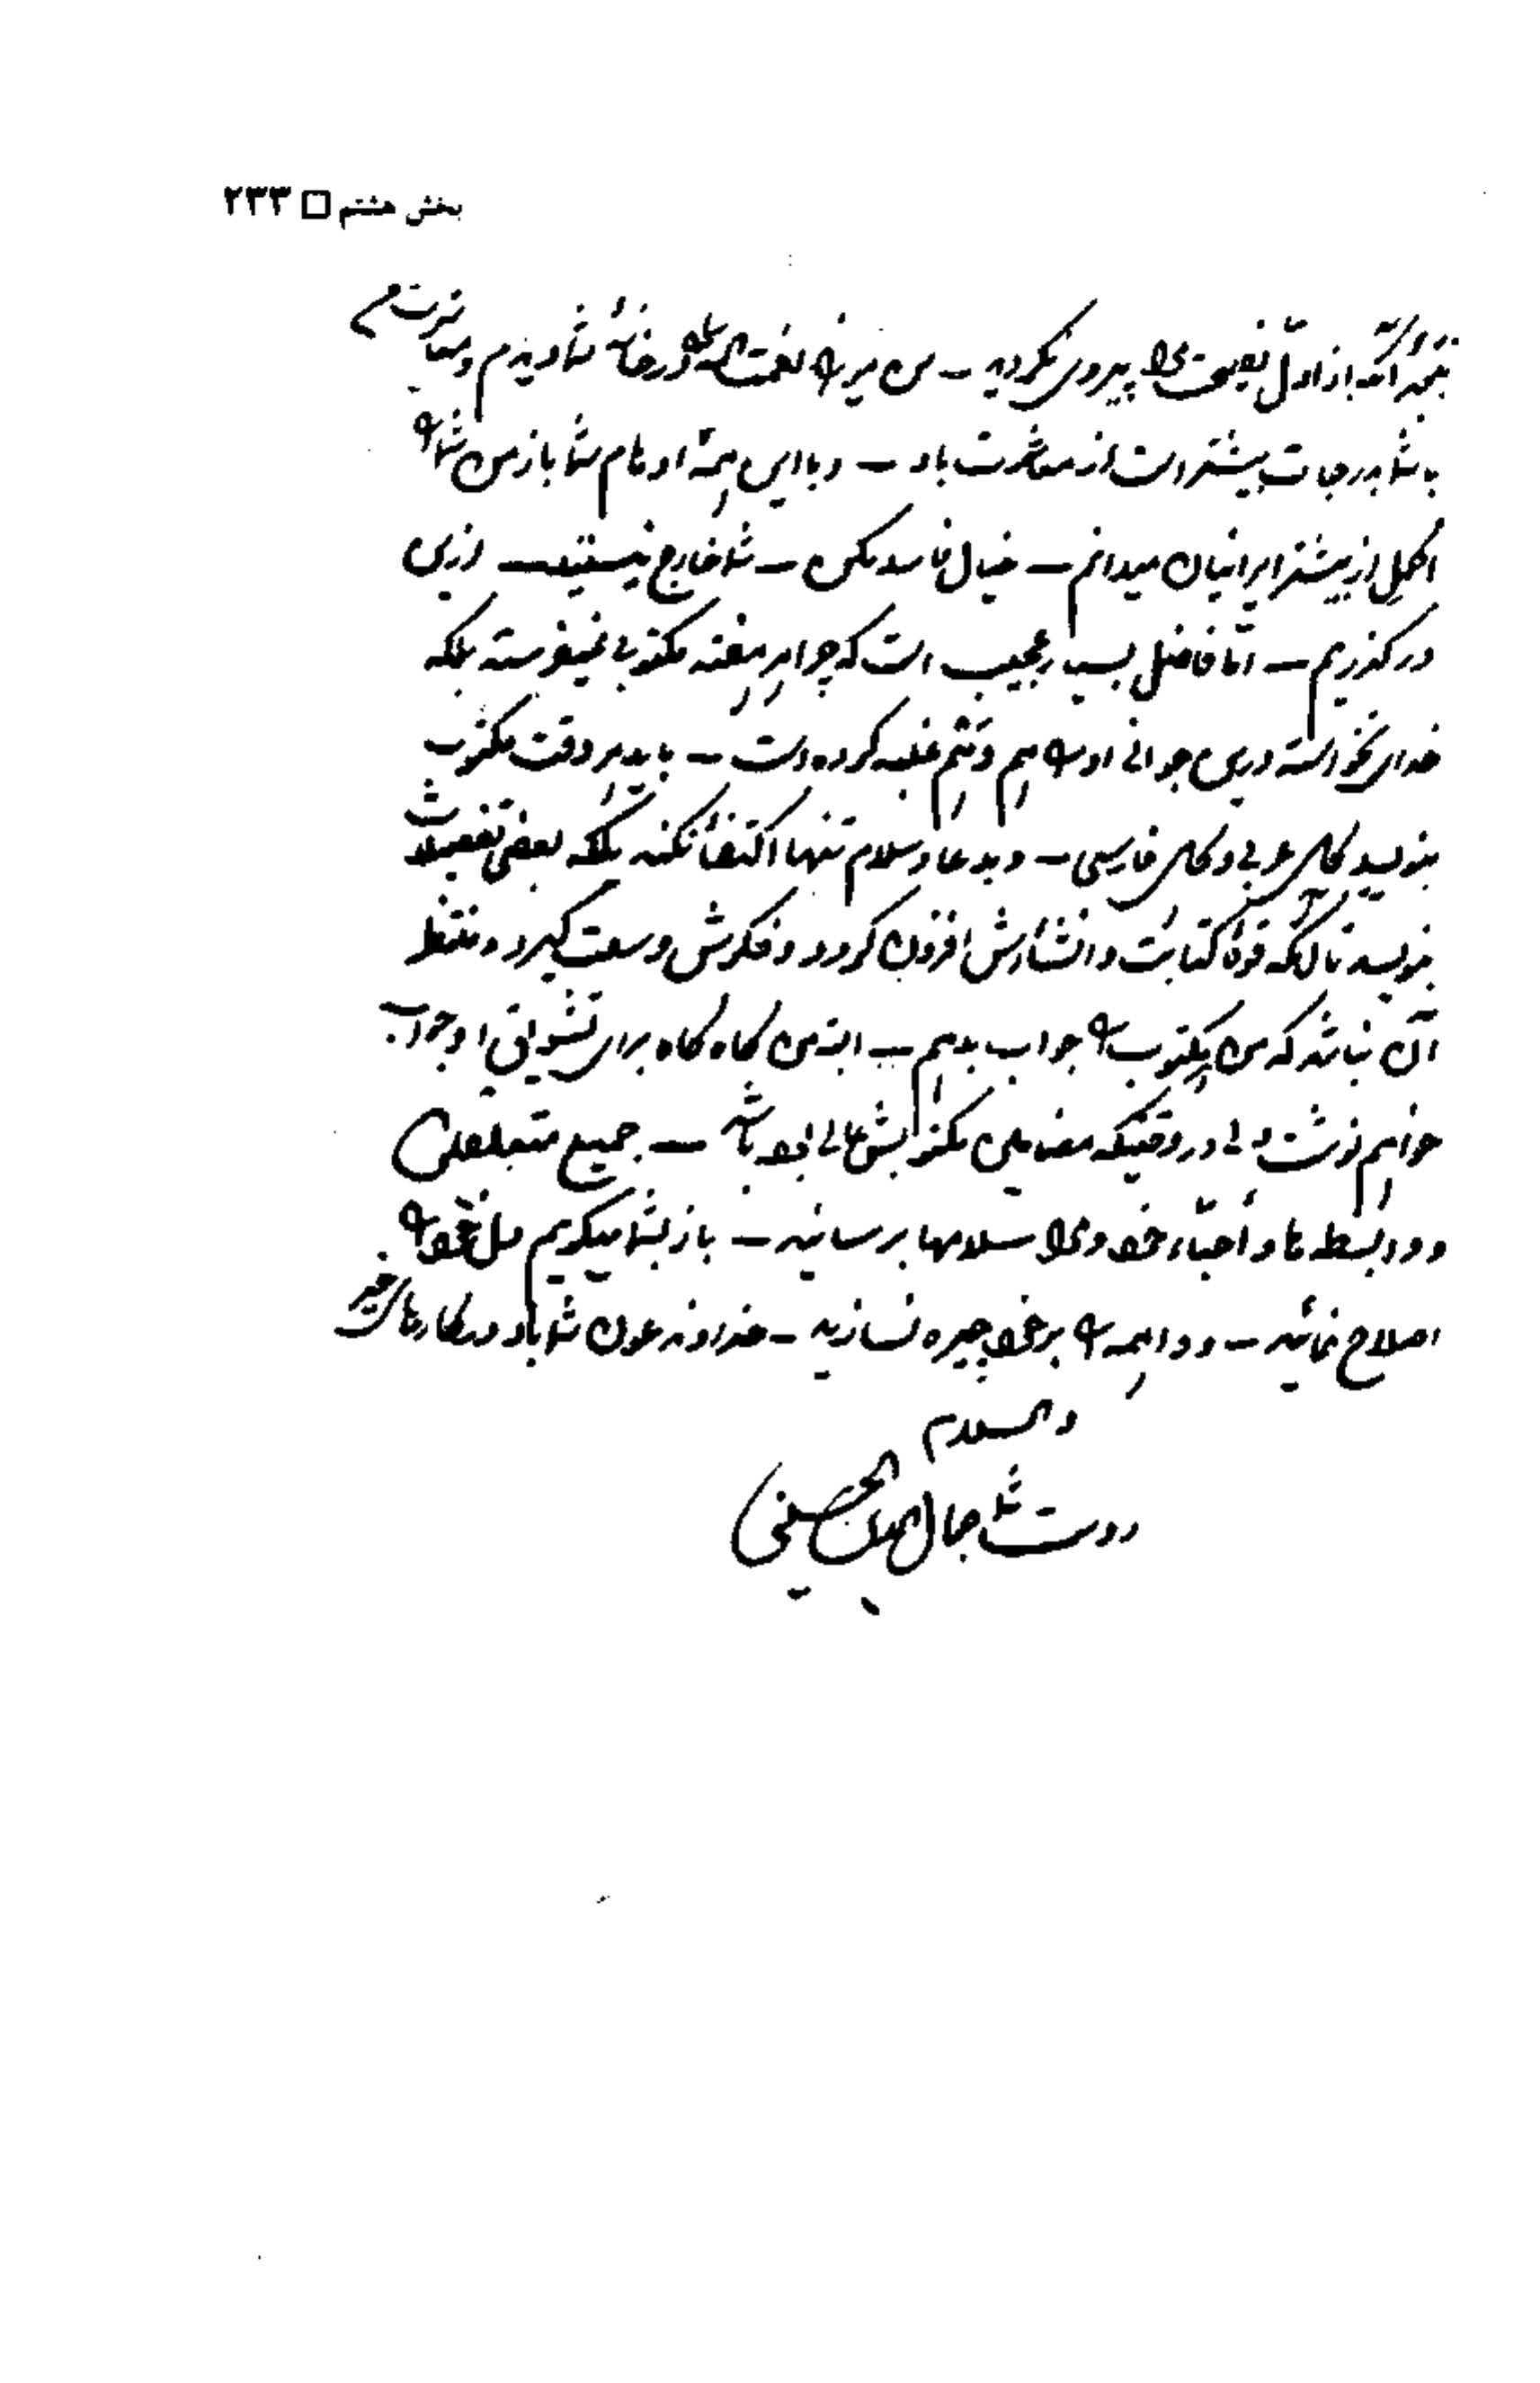 بخش هشتم □ ۲۳۳
از اول نصیحت مرا پیروی نکردید - من میرزا نعمت الله را در خانهٔ شما دیدم و معاشرتم
با شما بدرجات بیشتر است از معاشرت با او - و با این همهٔ اوهام شما باز من شما را
اکمل از بیشتر ایرانیان میدانم - خیال فاسد مکن - شما خارج نیستید - ازین
درگذریم - آقا فاضل بسیار عجیب است که چرا هر هفته مکتوبی نمیفرستد بلکه
خدای نخواسته درین جوانی او را هم و غم غلبه کرده است - باید هر وقت مکتوب
بنویسد گاهی عربی و گاهی فارسی - و بدعا و سلام تنها اکتفا نکند بلکه بعضی تفصیلات
بنویسد تا آنکه قوهٔ کتابت و انشاءاش افزون گردد و فکرش وسعت گیرد و منتظر
آن نباشد که من مکتوب را جواب بدهم - البته من گاه گاه برای تشویق او جواب
خواهم نوشت ولی در وقتیکه مضامین مکتوبش عالی بوده باشد - جمیع متعلقین
و وابسطه‌ها و احباء خود و مرا سلامها برسانید - باز بشما میگویم دل خود را
اصلاح نمائید - و واهمه را بر خود چیره نسازید - خداوند عون شما باد در کارهای خیر
والسلام
دوست شما جمال الدین الحسینی